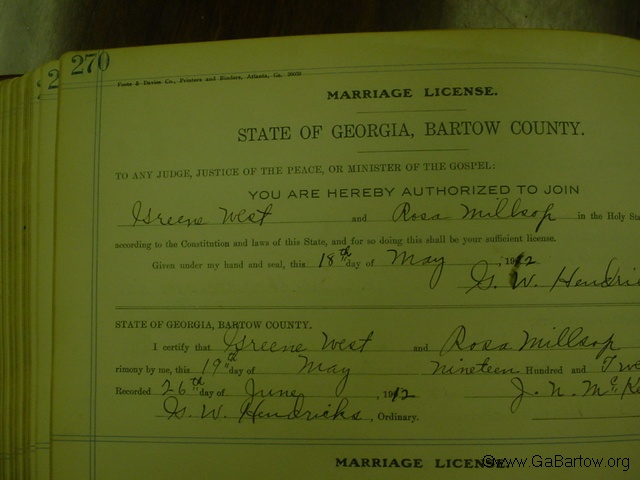 270
Foote & Davies Co., Printers and Binders, Atlanta, Ga.
MARRIAGE LICENSE.
STATE OF GEORGIA, BARTOW COUNTY.
TO ANY JUDGE, JUSTICE OF THE PEACE, OR MINISTER OF THE GOSPEL:
YOU ARE HEREBY AUTHORIZED TO JOIN
Greene West and Rosa Millsop in the Holy Sta
according to the Constitution and laws of this State, and for so doing this shall be your sufficient license.
Given under my hand and seal, this 18th day of May, 1912
G. W. Hendric
STATE OF GEORGIA, BARTOW COUNTY.
I certify that Greene West and Rosa Millsop
rimony by me, this 19th day of May nineteen Hundred and Twe
Recorded 26th day of June, 1912 J. N. McKe
G. W. Hendricks, Ordinary.
MARRIAGE LICENSE.
©www.GaBartow.org